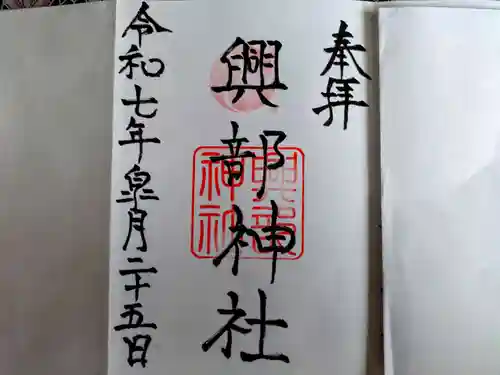 奉拝
興部神社
興部
神社
令和七年皐月二十五日